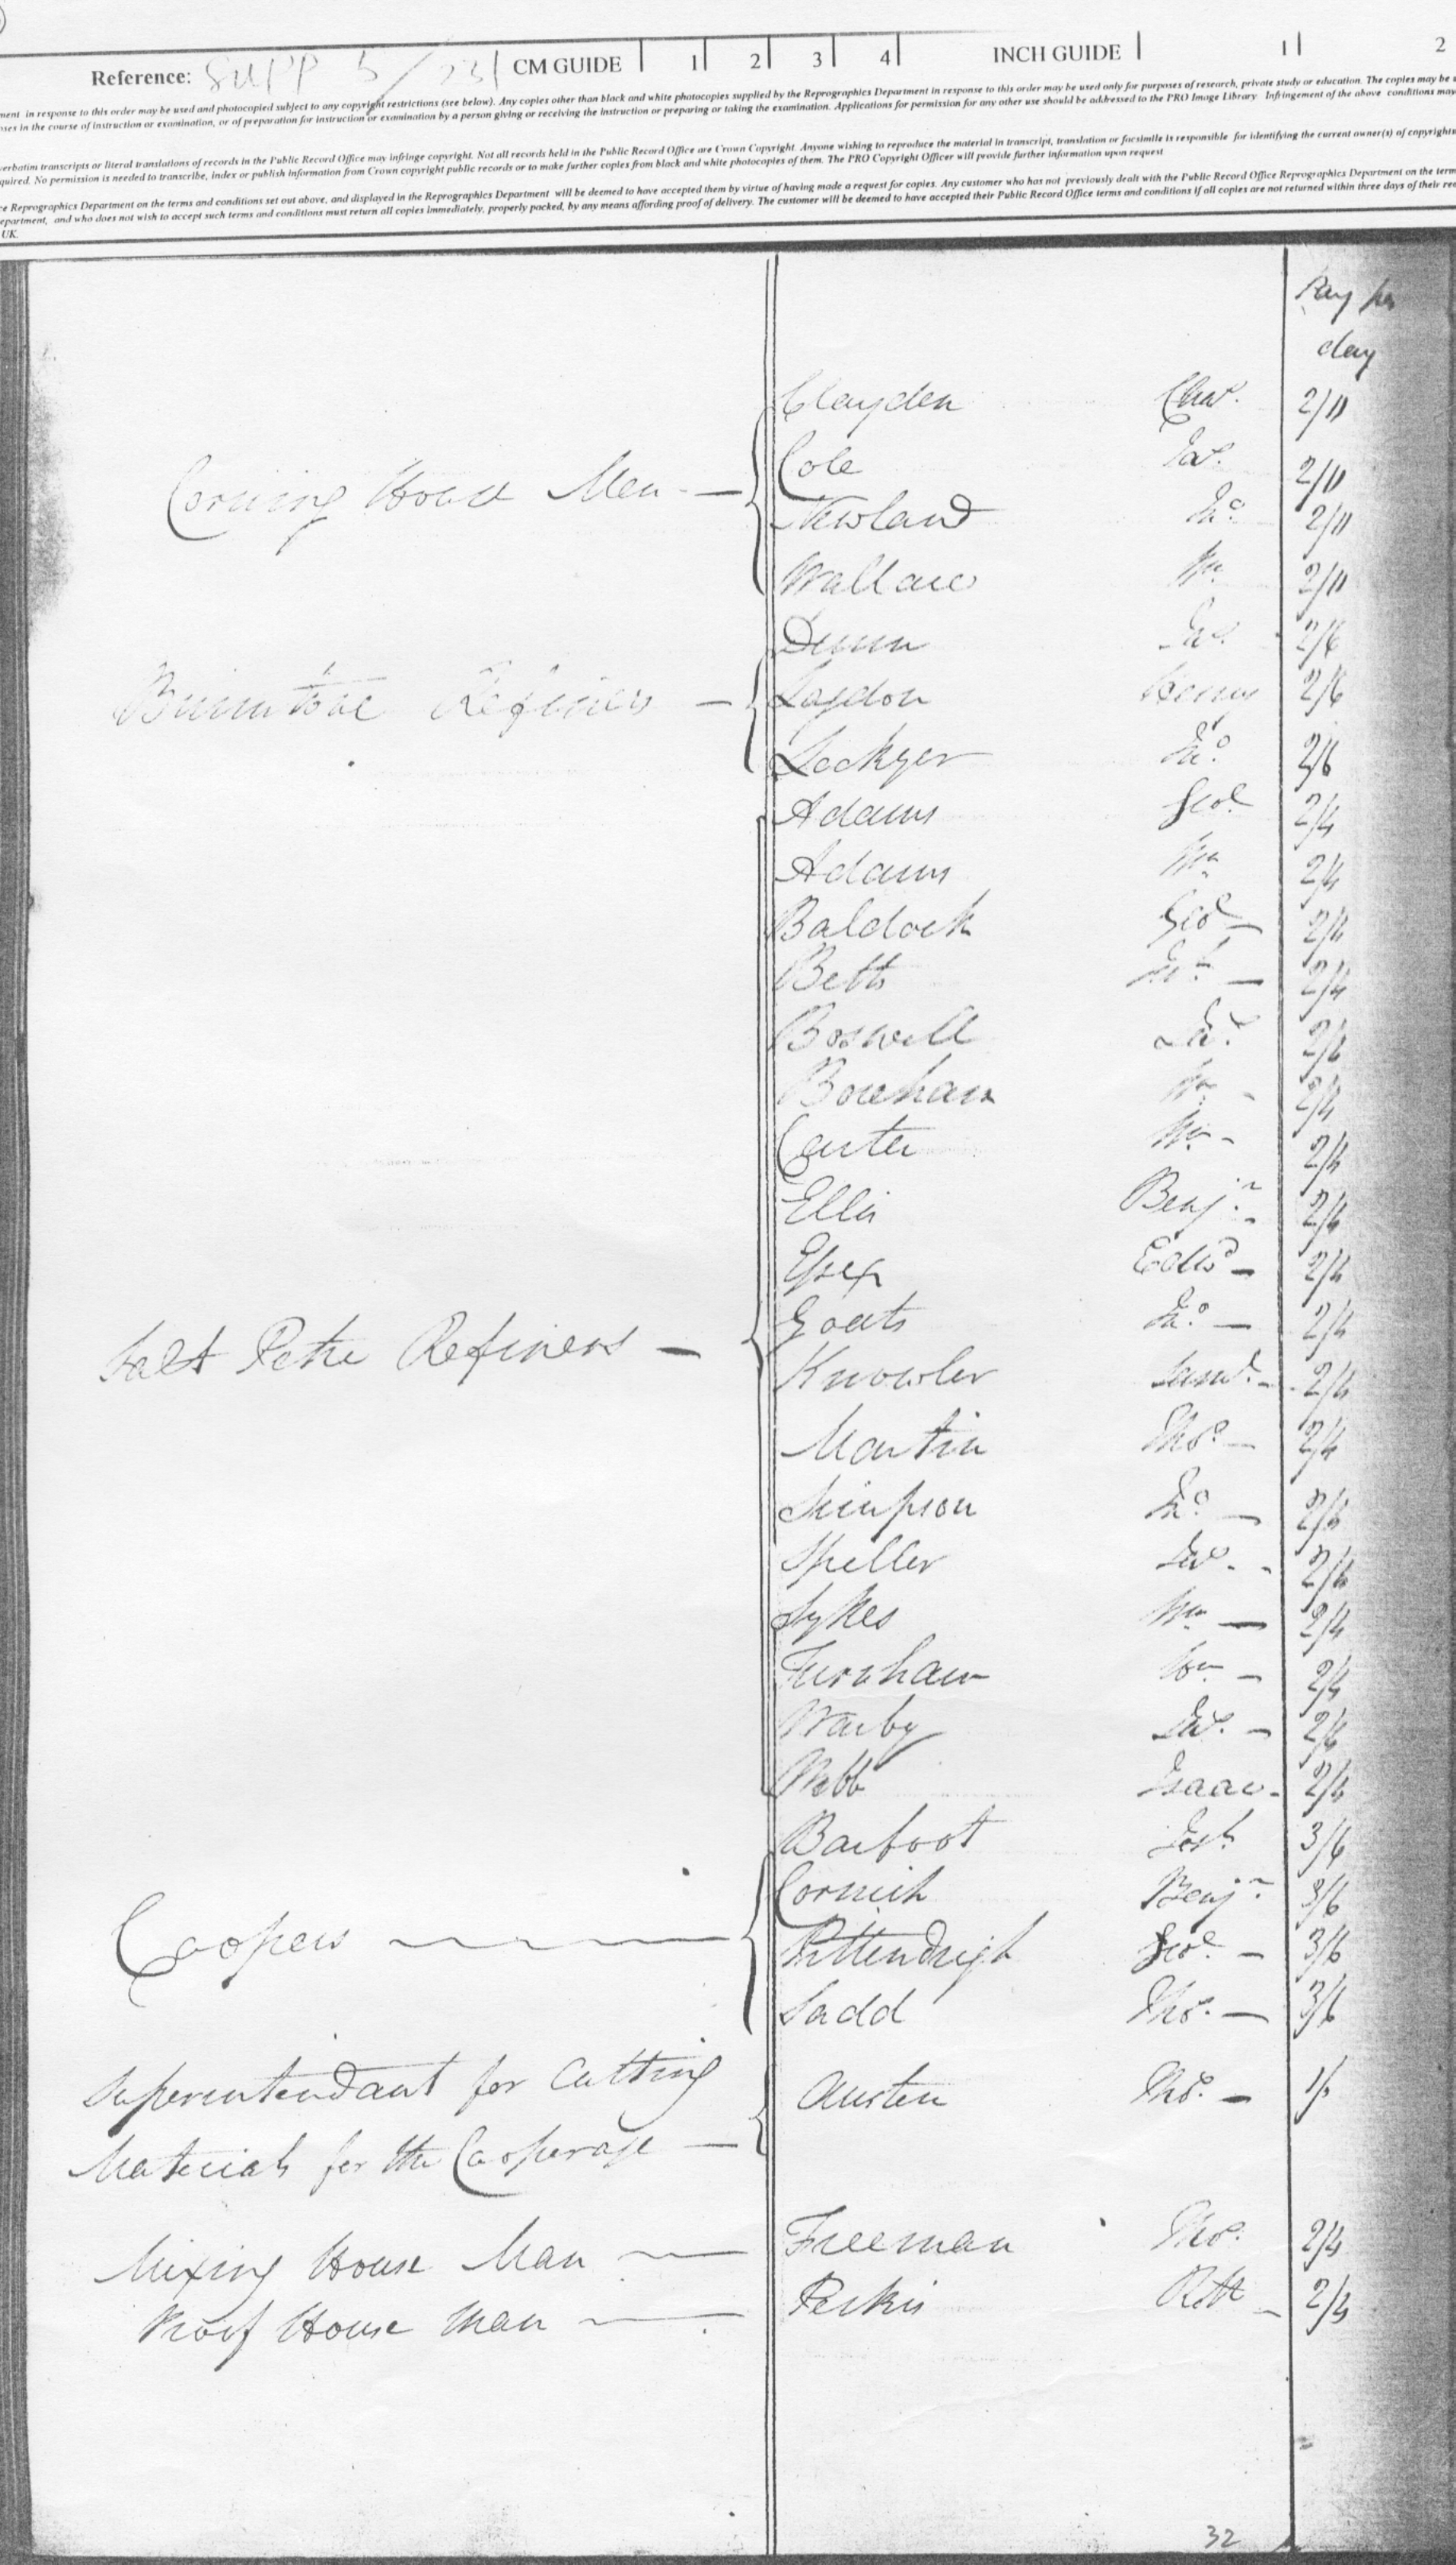 Reference: SUPP 5/23 CM GUIDE 1 2 3 4 INCH GUIDE 1 2
ment in response to this order may be used and photocopied subject to any copyright restrictions (see below). Any copies other than black and white photocopies supplied by the Reprographics Department in response to this order may be used only for purposes of research, private study or education. The copies may be
oses in the course of instruction or examination, or of preparation for instruction or examination by a person giving or receiving the instruction or preparing or taking the examination. Applications for permission for any other use should be addressed to the PRO Image Library Infringement of the above conditions may
verbatim transcripts or literal translations of records in the Public Record Office may infringe copyright. Not all records held in the Public Record Office are Crown Copyright. Anyone wishing to reproduce the material in transcript, translation or facsimile is responsible for identifying the current owner(s) of copyright
quired. No permission is needed to transcribe, index or publish information from Crown copyright public records or to make further copies from black and white photocopies of them. The PRO Copyright Officer will provide further information upon request
ce Reprographics Department on the terms and conditions set out above, and displayed in the Reprographics Department will be deemed to have accepted them by virtue of having made a request for copies. Any customer who has not previously dealt with the Public Record Office Reprographics Department on the term
epartment, and who does not wish to accept such terms and conditions must return all copies immediately, properly packed, by any means affording proof of delivery. The customer will be deemed to have accepted their Public Record Office terms and conditions if all copies are not returned within three days of their re
UK.
Pay per
day
Clayden Chas. 2/11
Cole Jas. 2/11
Corning House Men —
Newland Jno. 2/11
Wallace Wm 2/11
Dunn Jas. 2/6
Brimstone Refiners — Laydon Henry 2/6
Lockyer Jno. 2/6
Adams Geoe 2/4
Adams Wm 2/4
Baldock Geoe — 2/4
Betts — 2/4
Boswell Jas. 2/4
Boreham Wm. - 2/4
Carter Wm - 2/4
Ellis Benjn. - 2/4
Essex Edwd — 2/4
Goats Jno. — 2/4
Salt Petre Refiners —
Knowler Saml. - 2/4
Martin Thos — 2/4
Simpson Jno — 2/4
Speller Jas. - 2/4
Sykes Wm — 2/4
Turnham Wm — 2/4
Warby Jas. — 2/4
Webb Isaac - 2/4
Barfoot Josh 3/6
Cornish Benjn. 3/6
Coopers — Pittendrigh Geoe. — 3/6
Sadd Thos. — 3/6
Superintendant for Cutting
Materials for the Cooperage — Austen Thos. — 1/-
Mixing House Man — Freeman Thos. 2/4
Proof House Man — Perkis Rt — 2/4
32